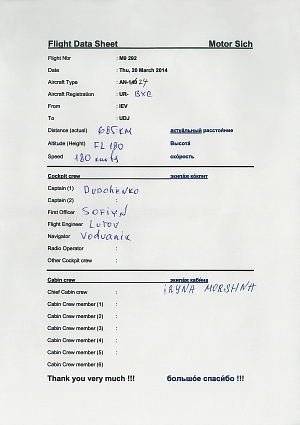 Flight Data Sheet Motor Sich
Flight Nbr : M9 292
Date : Thu, 20 March 2014
Aircraft Type : AN-140 24
Aircraft Registration : UR- BXC
From : IEV
To : UDJ
Distance (actual) 685KM актуа́льный расстоя́ние
Altitude (Height) FL 180 Высота́
Speed 180 knots ско́рость
Cockpit crew экипа́ж ко́кпит
Captain (1) DUDCHENKO
Captain (2) :
First Officer SOFIYN
Flight Engineer LUTOV
Navigator Vodvanik
Radio Operator :
Other Cockpit crew :
Cabin crew экипа́ж каби́на
Chief Cabin crew : IRYNA MORSHNA
Cabin Crew member (1) :
Cabin Crew member (2) :
Cabin Crew member (3) :
Cabin Crew member (4) :
Cabin Crew member (5) :
Cabin Crew member (6) :
Thank you very much !!! большо́е спаси́бо !!!